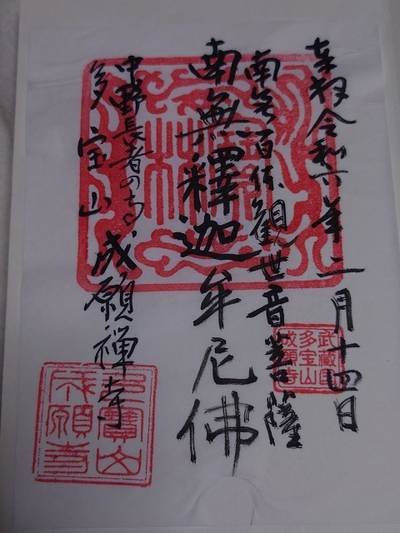 奉拝令和六年二月十四日
南无百体観世音菩薩
南無釋迦牟尼佛
中野長者の寺
多宝山 成願禅寺
武蔵国
多宝山
成願寺
多寶山
成願寺